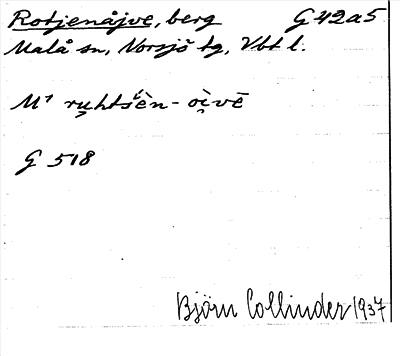 Rotjenåjve, berg G 42a5
Malå sn, Norsjö tg, Vbt l.
M¹ ru̯htśèn-oi̯vē
G 518
Björn Collinder 1937